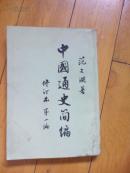 范文瀾著
中國通史簡編
修訂本第一編